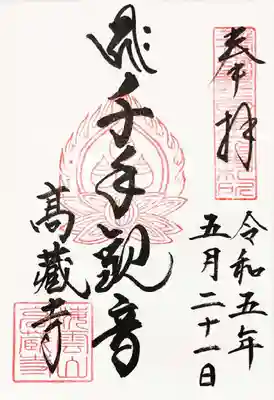 奉拝
令和五年
五月二十一日
千手観音
高蔵寺